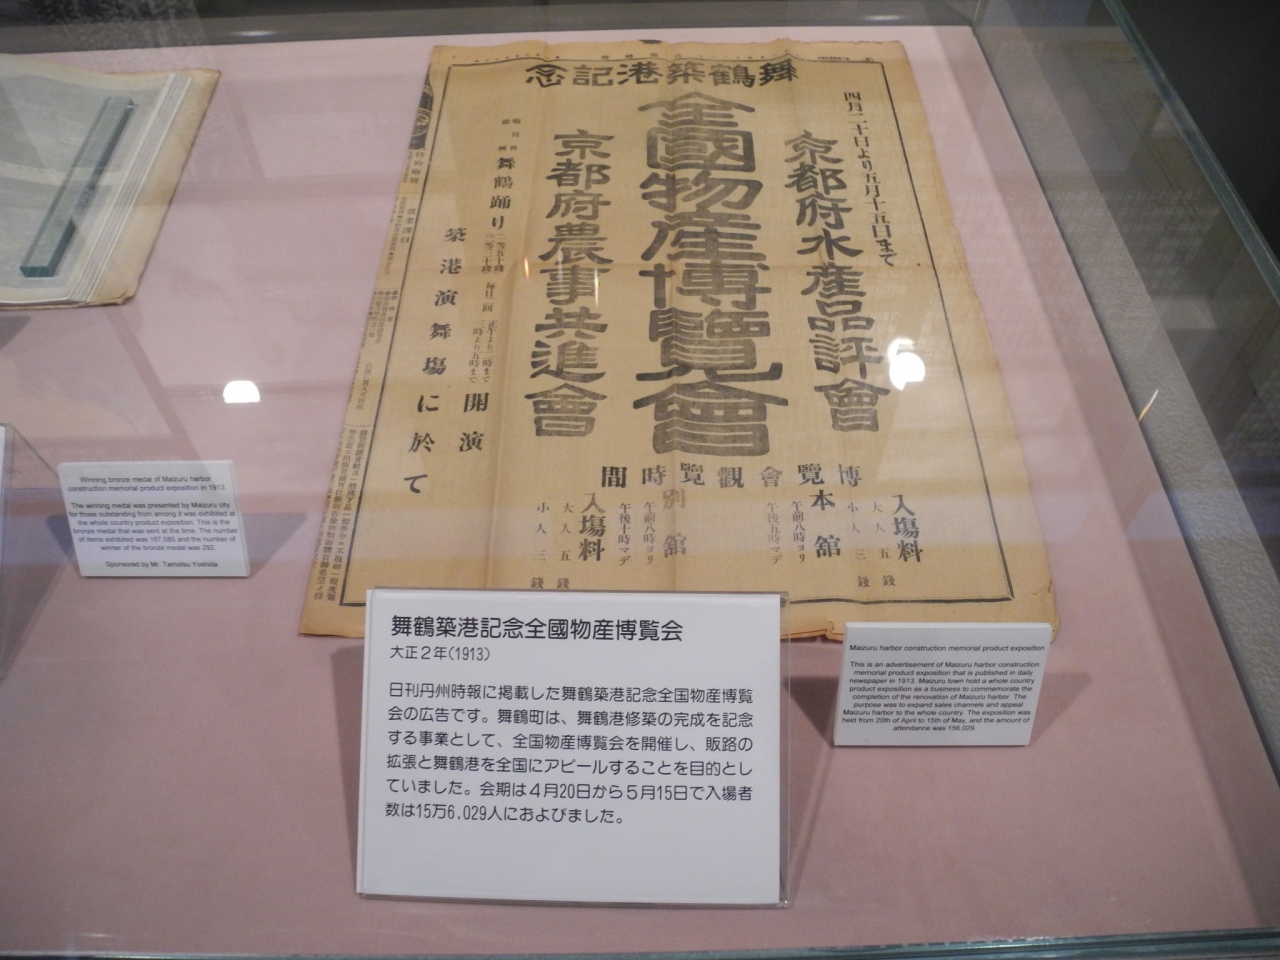 舞鶴築港記念
四月二十日より五月十五日まで
京都府水産品評會
全國物産博覽會
京都府農事共進會
舞鶴踊り
一等五十錢
二等三十錢
毎日二回
正午より二時まで
三時より五時まで
開演
築港演舞場に於て
博覽會觀覽時間
本舘
午前八時ヨリ
午後五時マデ
入場料
大人五錢
小人三錢
別舘
午前八時ヨリ
午後十時マデ
入場料
大人五錢
小人三錢
Winning bronze medal of Maizuru harbor
construction memorial product exposition in 1913
The winning medal was presented by Maizuru city
for those outstanding from among it was exhibited at
the whole country product exposition. This is the
bronze medal that was sent at the time. The number
of items exhibited was 167,585 and the number of
winner of the bronze medal was 292.
Sponsored by Mr. Tamotsu Yoshida
舞鶴築港記念全國物産博覧会
大正2年(1913)
日刊丹州時報に掲載した舞鶴築港記念全国物産博覧
会の広告です。舞鶴町は、舞鶴港修築の完成を記念
する事業として、全国物産博覧会を開催し、販路の
拡張と舞鶴港を全国にアピールすることを目的とし
ていました。会期は4月20日から5月15日で入場者
数は15万6,029人におよびました。
Maizuru harbor construction memorial product exposition
This is an advertisement of Maizuru harbor construction
memorial product exposition that is published in daily
newspaper in 1913. Maizuru town hold a whole country
product exposition as a business to commemorate the
completion of the renovation of Maizuru harbor. The
purpose was to expand sales channels and appeal
Maizuru harbor to the whole country. The exposition was
held from 20th of April to 15th of May, and the amount of
attendance was 156,029.